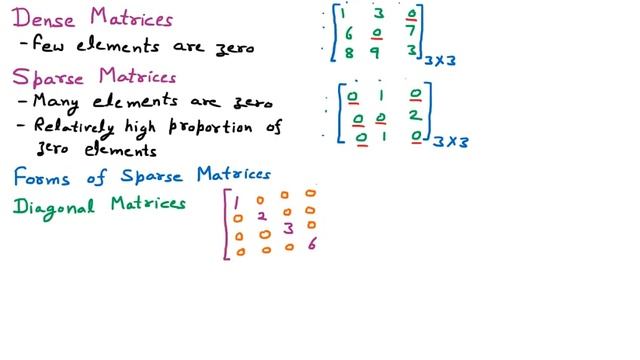 Dense Matrices
- few elements are zero
1 3 0
6 0 7
8 9 3
3×3
Sparse Matrices
- Many elements are zero
- Relatively high proportion of
zero elements
0 1 0
0 0 2
0 1 0
3×3
Forms of Sparse Matrices
Diagonal Matrices
1 0 0 0
0 2 0 0
0 0 3 0
0 0 0 6